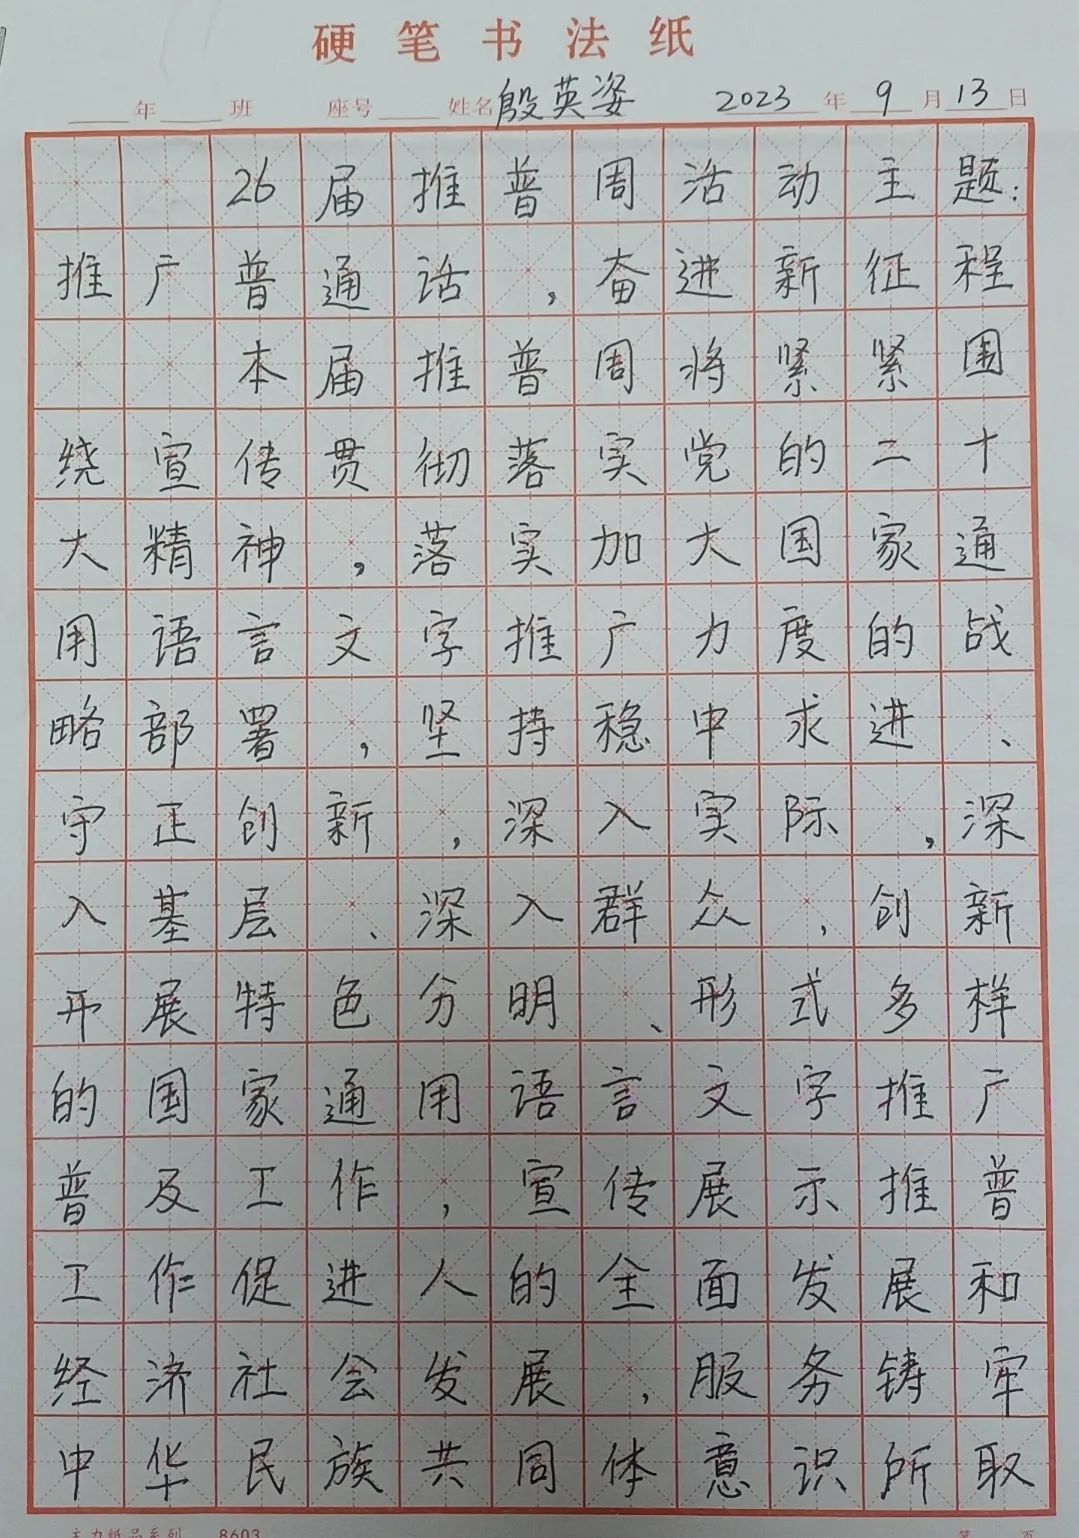 硬笔书法纸
年 班 座号 姓名 殷英姿 2023 年 9 月 13 日
26届推普周活动主题:
推广普通话,奋进新征程
本届推普周将紧紧围
绕宣传贯彻落实党的二十
大精神,落实加大国家通
用语言文字推广力度的战
略部署,坚持稳中求进、
守正创新,深入实际,深
入基层、深入群众,创新
开展特色分明、形式多样
的国家通用语言文字推广
普及工作,宣传展示推普
工作促进人的全面发展和
经济社会发展,服务铸牢
中华民族共同体意识所取
主力纸品系列 8603 第 页